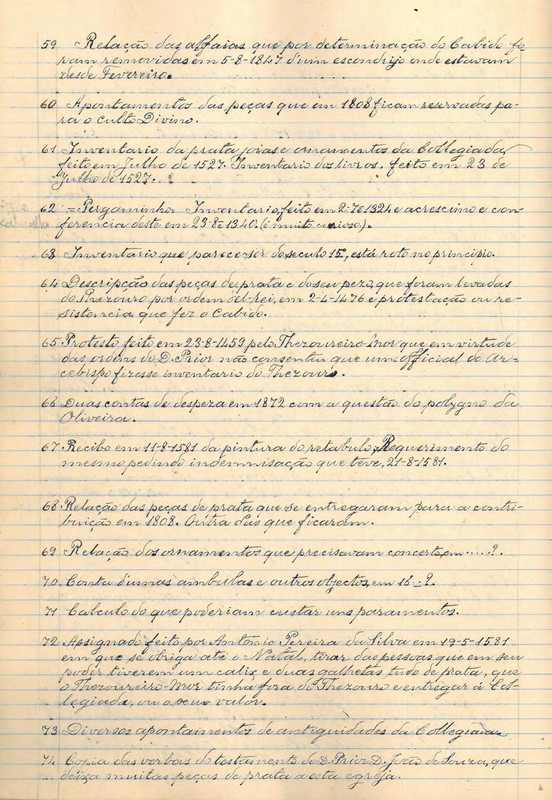 59 Relação das alfaias que por determinação do Cabido fo-
ram removidas em 5-8-1847 d'um escondrijo onde estavam
desde Fevereiro.
60 Apontamentos das peças que em 1808 ficam reservadas pa-
ra o culto Divino.
61 Inventario da prata joias e ornamentos da Collegiada,
feito em Julho de 1527. Inventario dos livros, feito em 23 de
Julho de 1527.
62 =Pergaminho= Inventario, feito em 2-7-1324 e acrescimo e con-
ferencia deste em 23-8-1340. (é muito curioso).
63 Inventario que parece ser do seculo 15, está roto no principio.
64 Descripção das peças de prata e do seu pezo, que foram levadas
do Thezouro por ordem del-rei, em 2-4-1476 e protestação ou re-
sistencia que fez o Cabido.
65 Protesto feito em 23-8-1459 pelo Thezoureiro-Mor que em virtude
das ordens do D. Prior não consentia que um official do Ar-
cebispo fizesse inventario do Thezouro.
66 Duas contas de despeza em 1872 com a questão do polygno da
Oliveira.
67 Recibo em 11-8-1581 da pintura do retabulo; Requerimento do
mesmo pedindo indemnisação que teve, 21-8-1581.
68 Relação das peças de prata que se entregaram para a contri-
buição em 1808. Outra das que ficaram.
69 Relação dos ornamentos que precisavam concerto, em ....?.
70 Conta d'umas ambulas e outros objectos, em 16..?.
71 Calculo do que poderiam custar uns paramentos.
72 Assignado feito por Antonio Pereira da Silva em 19-5-1581
em que se obriga até o Natal, tirar das pessoas que em seu
poder tiverem um calis e duas galhetas, tudo de prata, que
o Thezoureiro-Mor tinha fora do Thezouro e entregar á Col-
legiada, ou o seu valor.
73 Diversos apontamentos de antiguidades da Collegiada
74 Copia das verbas do testamento do D. Prior D. João de Souza, que
deixa muitas peças de prata a esta egreja.